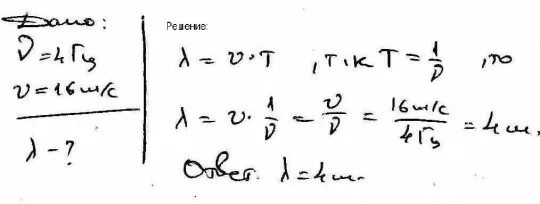 Дано:
ν = 4 Гц
υ = 16 м/с
λ - ?
Решение:
λ = υ · T , т.к T = 1/ν , то
λ = υ · 1/ν = υ/ν = 16 м/с / 4 Гц = 4 м.
Ответ. λ = 4 м.